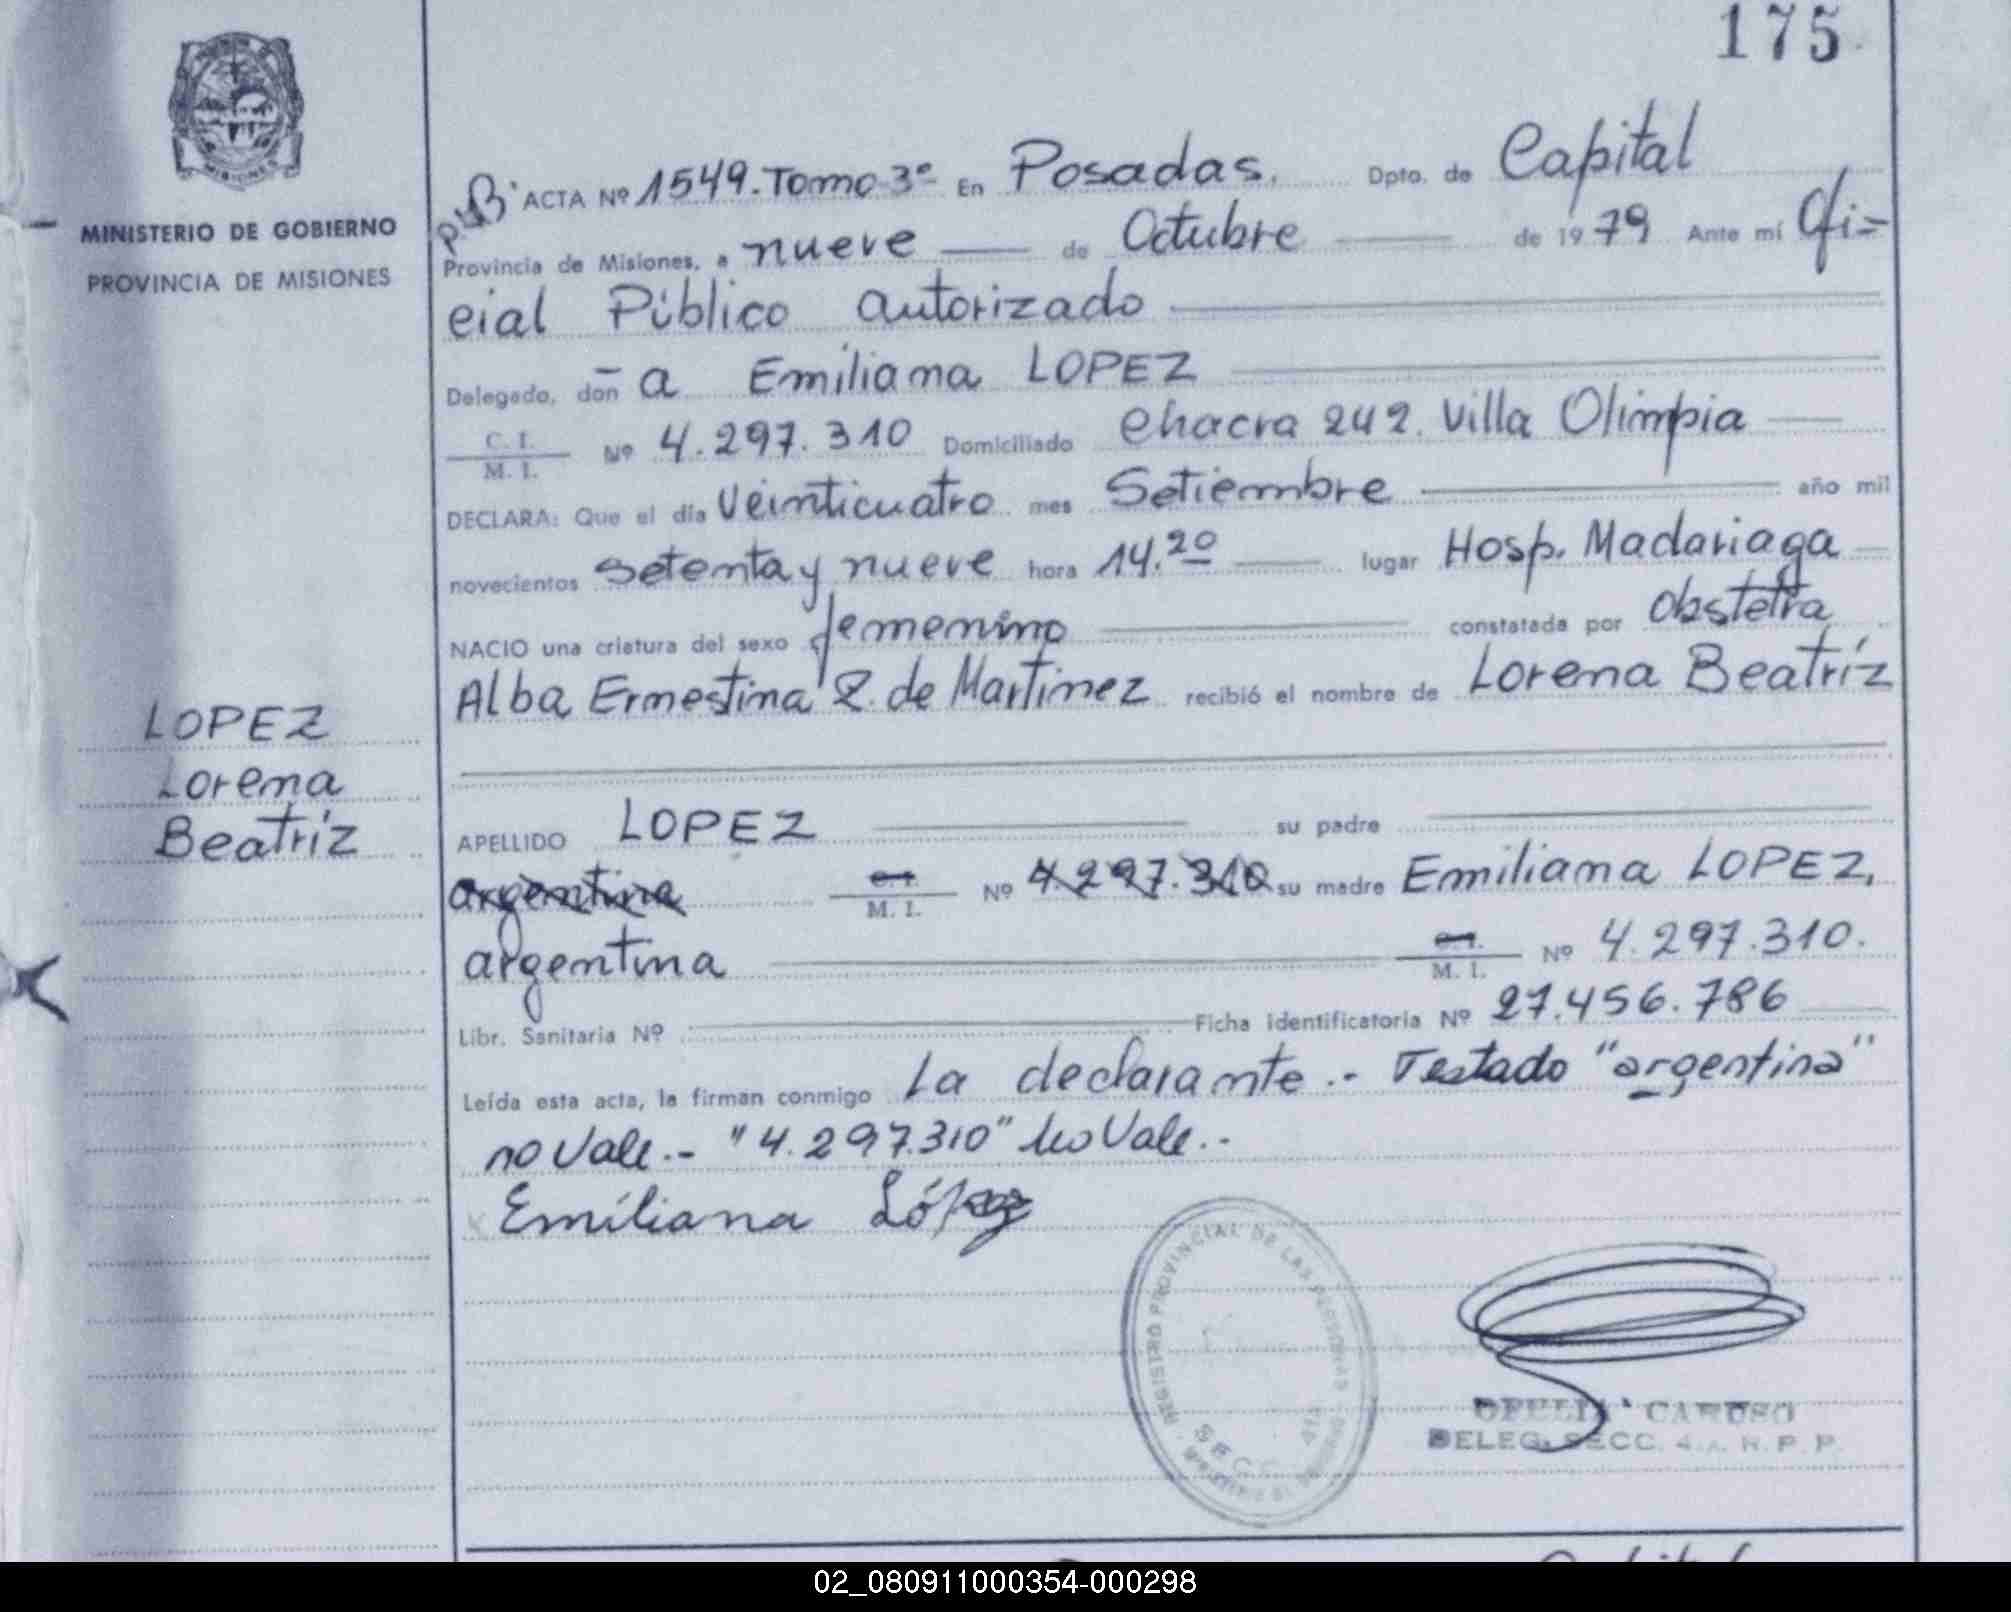 175
MISIONES
MINISTERIO DE GOBIERNO
PROVINCIA DE MISIONES
LOPEZ
Lorena
Beatríz
ACTA Nº 1549. Tomo 3º En Posadas. Dpto. de Capital
Provincia de Misiones, a nueve de Octubre de 1979 Ante mí Ofi=
cial Público autorizado
Delegado, don a Emiliana LOPEZ
C. I. / M. I. Nº 4.297.310 Domiciliado Chacra 242. Villa Olimpia
DECLARA: Que el día Veinticuatro mes Setiembre año mil
novecientos setenta y nueve hora 14.20 lugar Hosp. Madariaga
NACIO una criatura del sexo femenino constatada por Obstetra
Alba Ernestina Z. de Martinez recibió el nombre de Lorena Beatríz
APELLIDO LOPEZ su padre
argentina C. I. / M. I. Nº 4.297.310 su madre Emiliana LOPEZ,
argentina C. I. / M. I. Nº 4.297.310.
Libr. Sanitaria Nº Ficha identificatoria Nº 27.456.786
Leída esta acta, la firman conmigo la declarante.- Testado "argentina"
no Vale.- "4.297.310" no Vale.-
Emiliana López
REGISTRO PROVINCIAL DE LAS PERSONAS
SECC. 4ta
OFELIA CARUSO
DELEG. SECC. 4.a. R. P. P.
02_080911000354-000298